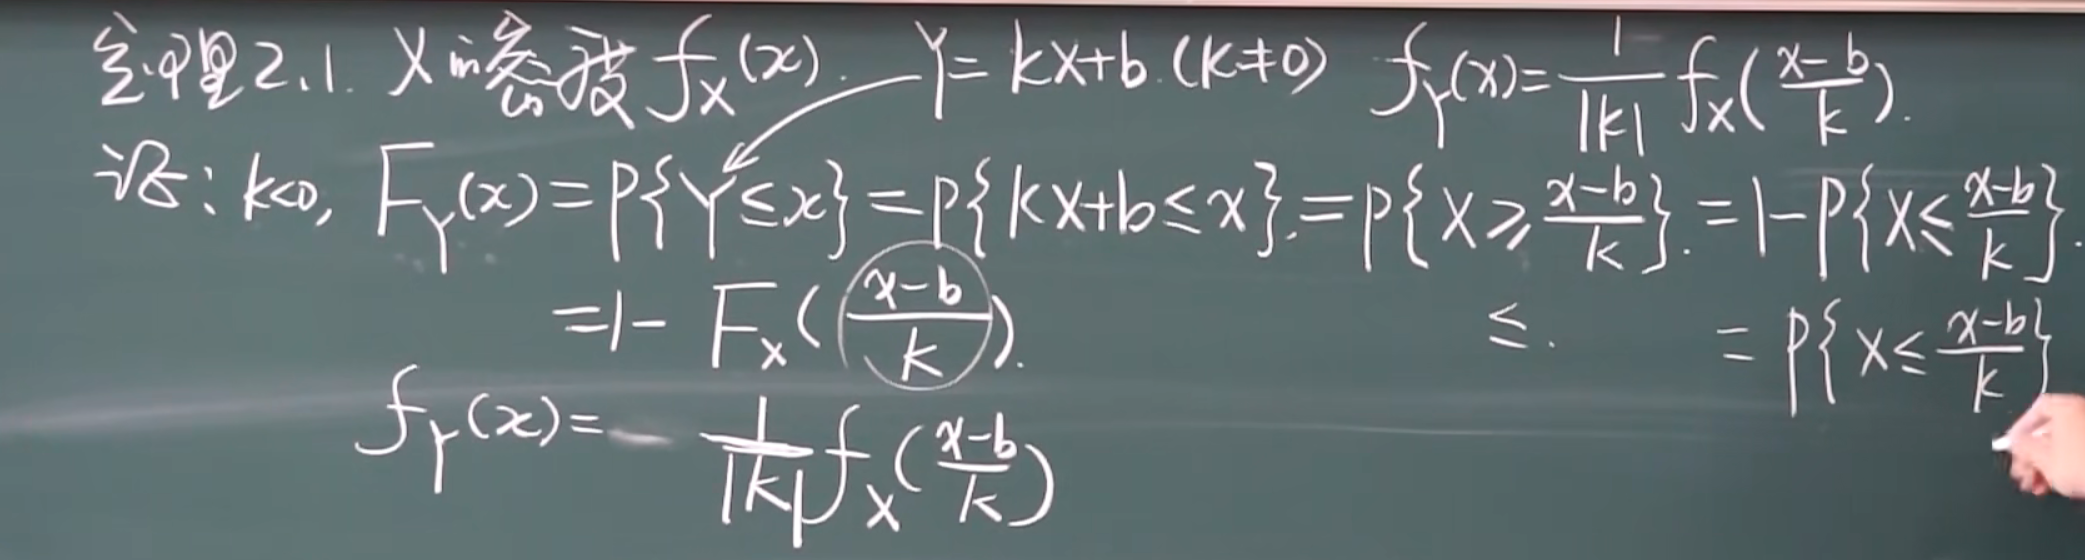 定理2.1. X的密度 f_X(x). Y=kX+b (k≠0) f_Y(x)=\frac{1}{|k|}f_X(\frac{x-b}{k}).
证: k<0, F_Y(x)=P{Y≤x}=P{kX+b≤x}.=P{X≥\frac{x-b}{k}}.=1-P{X≤\frac{x-b}{k}}.
=1-F_X(\frac{x-b}{k}). ≤. =P{X≤\frac{x-b}{k}}
f_Y(x)= \frac{1}{|k|}f_X(\frac{x-b}{k})